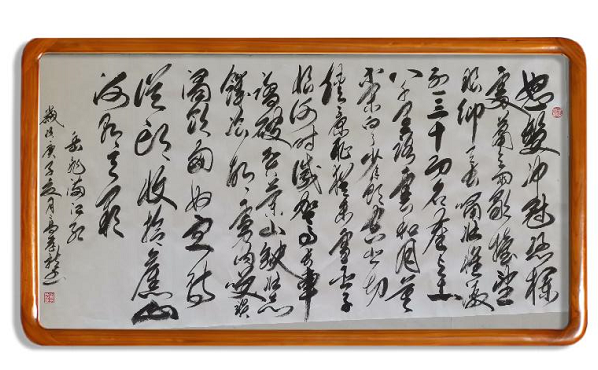 怒髮冲冠凭欄
處蕭蕭雨歇抬望
眼仰天長嘯壯懷激
烈三十功名塵与土
八千里路雲和月莫
等閑白了少年頭空悲切
靖康耻猶未雪臣子
恨何時滅駕長車
踏破賀蘭山缺壯志
饑餐胡虜肉笑談
渴飲匈奴血待
從頭收拾舊山
河朝天闕
岳飛滿江紅
歲次庚子夏月